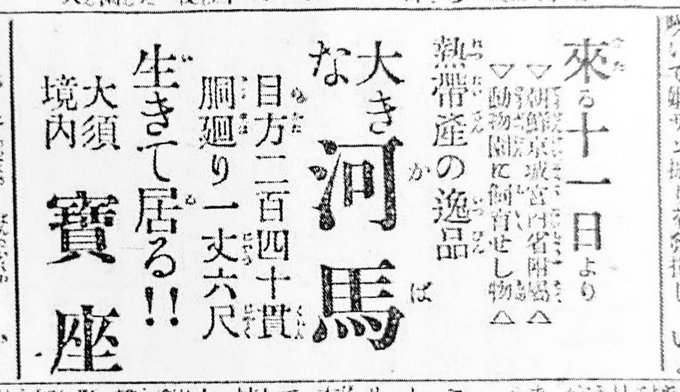 來る十一日より
▽朝鮮京城宮內省附屬△
▽動物園に飼育せし物△
熱帶產の逸品
大きな河馬
目方二百四十貫
胴廻り一丈六尺
生きて居る!!
大須境內
寶座